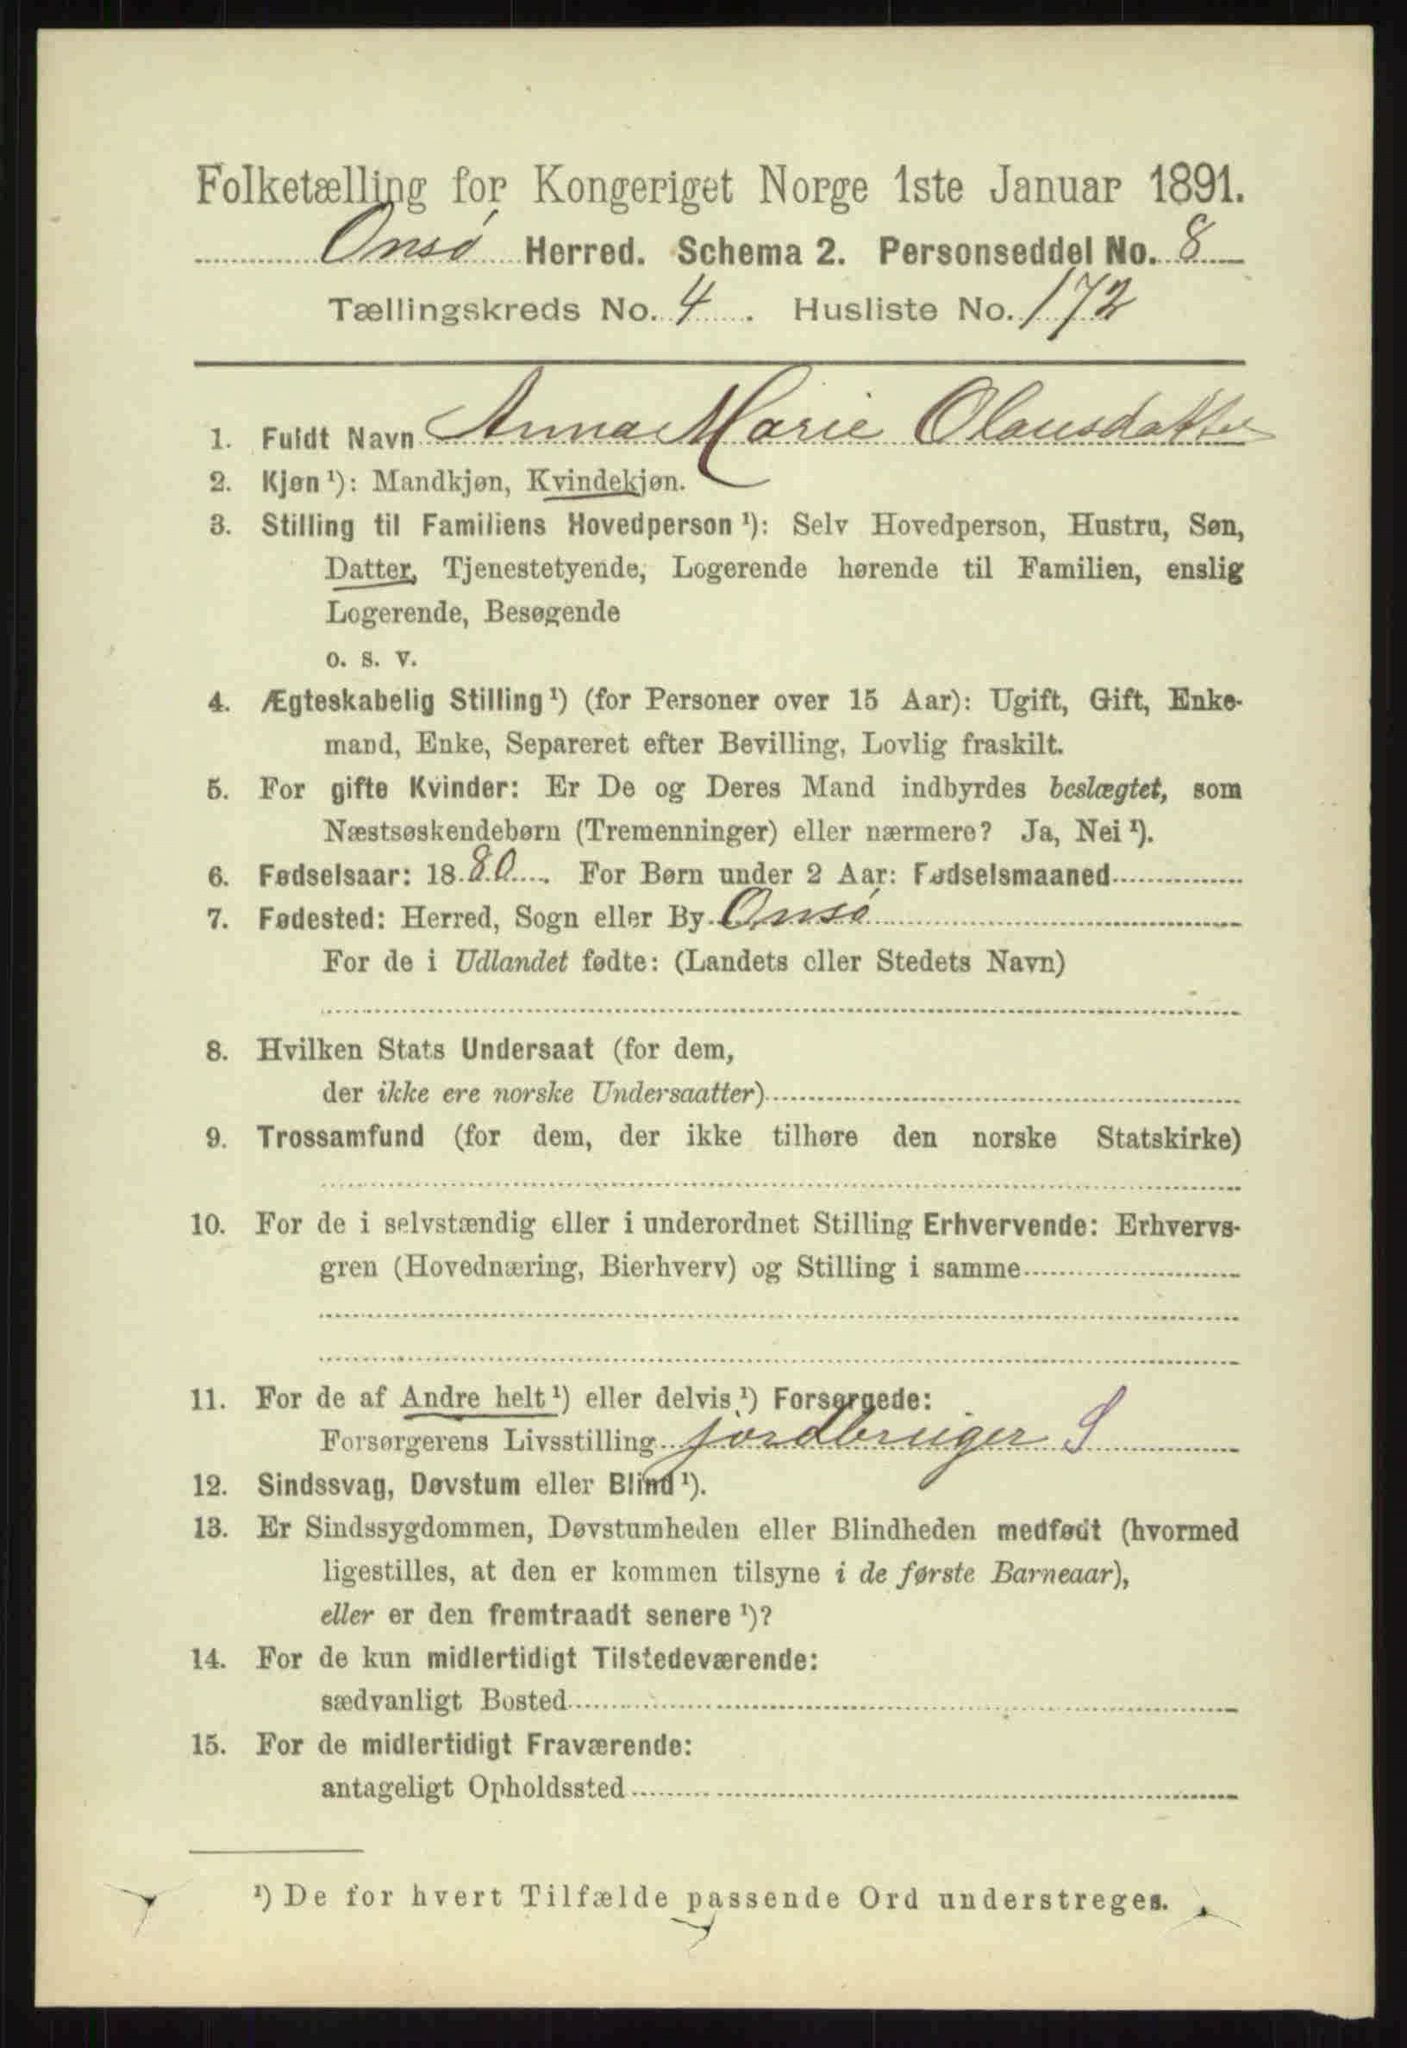 Folketælling for Kongeriget Norge 1ste Januar 1891.
Onsø Herred. Schema 2. Personseddel No. 8
Tællingskreds No. 4. Husliste No. 172
1. Fuldt Navn Anna Marie Olausdatter
2. Kjøn ¹): Mandkjøn, Kvindekjøn.
3. Stilling til Familiens Hovedperson ¹): Selv Hovedperson, Hustru, Søn,
Datter, Tjenestetyende, Logerende hørende til Familien, enslig
Logerende, Besøgende
o. s. v.
4. Ægteskabelig Stilling ¹) (for Personer over 15 Aar): Ugift, Gift, Enke-
mand, Enke, Separeret efter Bevilling, Lovlig fraskilt.
5. For gifte Kvinder: Er De og Deres Mand indbyrdes beslægtet, som
Næstsøskendebørn (Tremenninger) eller nærmere? Ja, Nei ¹).
6. Fødselsaar: 1880. For Børn under 2 Aar: Fødselsmaaned
7. Fødested: Herred, Sogn eller By Onsø
For de i Udlandet fødte: (Landets eller Stedets Navn)
8. Hvilken Stats Undersaat (for dem,
der ikke ere norske Undersaatter)
9. Trossamfund (for dem, der ikke tilhøre den norske Statskirke)
10. For de i selvstændig eller i underordnet Stilling Erhvervende: Erhvervs-
gren (Hovednæring, Bierhverv) og Stilling i samme
11. For de af Andre helt ¹) eller delvis ¹) Forsørgede:
Forsørgerens Livsstilling jordbruger S
12. Sindssvag, Døvstum eller Blind ¹).
13. Er Sindssygdommen, Døvstumheden eller Blindheden medfødt (hvormed
ligestilles, at den er kommen tilsyne i de første Barneaar),
eller er den fremtraadt senere ¹)?
14. For de kun midlertidigt Tilstedeværende:
sædvanligt Bosted
15. For de midlertidigt Fraværende:
antageligt Opholdssted
¹) De for hvert Tilfælde passende Ord understreges.